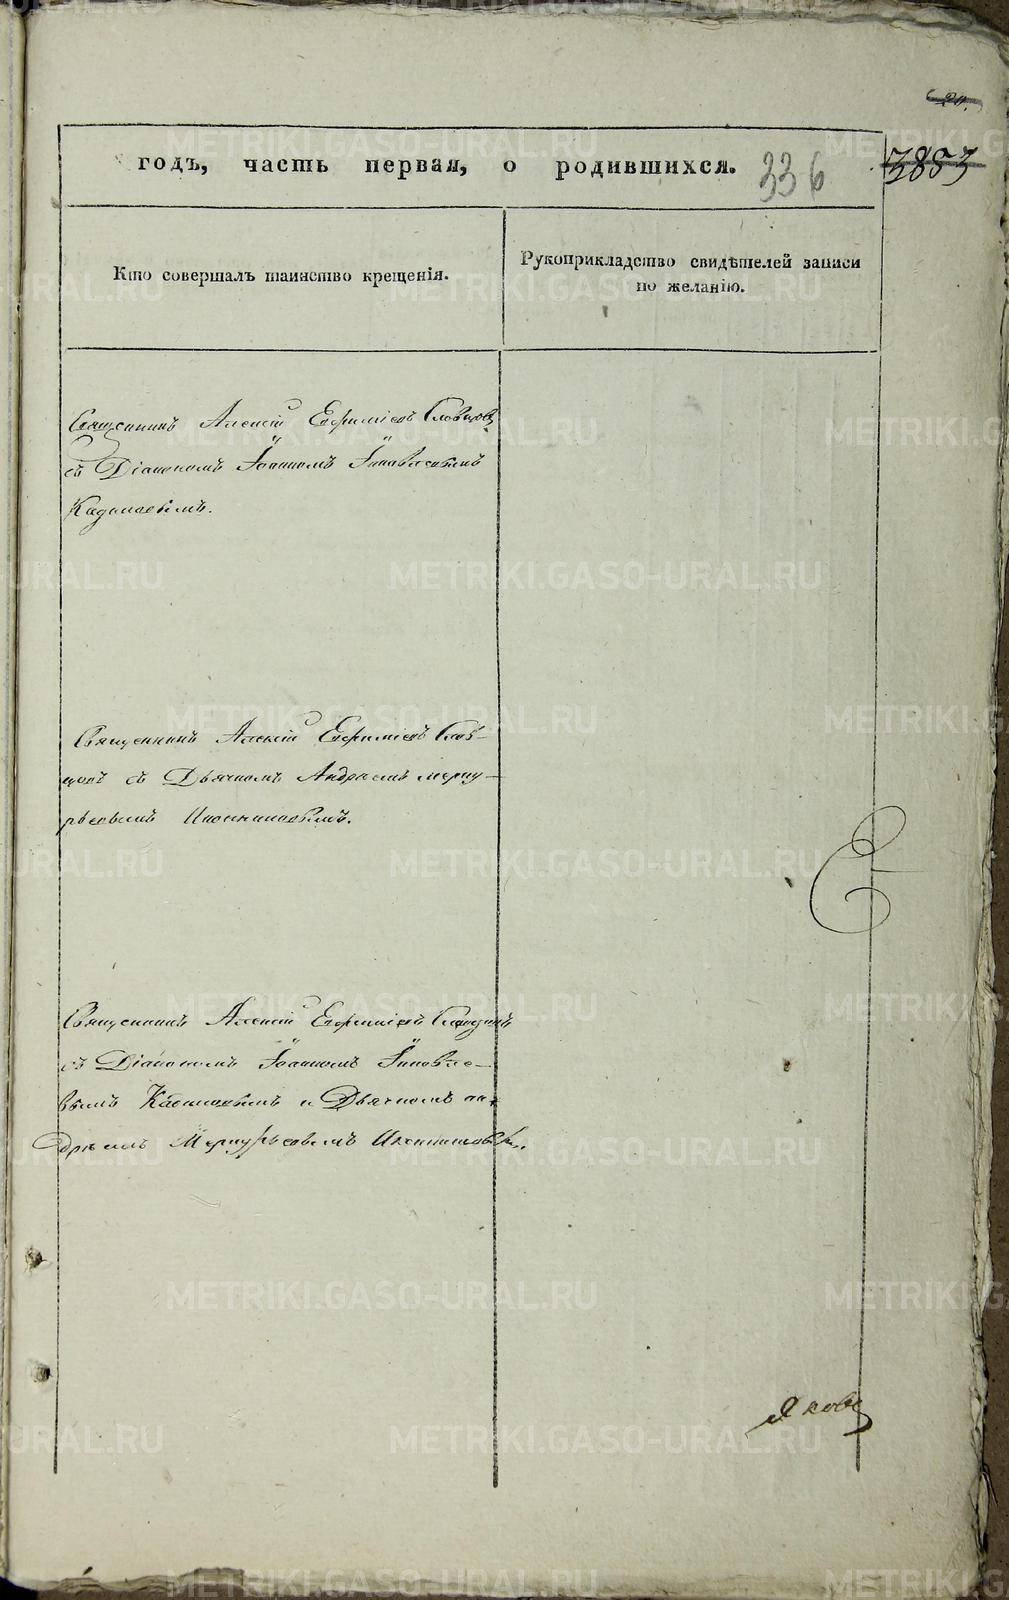 годъ, часть первая, о родившихся.
336
3853
Кто совершалъ таинство крещенія.
Рукоприкладство свидѣтелей записи
по желанію.
Священникъ Алексій Ефиміевъ Словцовъ
съ Діакономъ Іоанномъ Іяковлевымъ
Священникъ Алексій Ефиміевъ Слов-
цовъ съ Дьячкомъ Андреемъ мерку-
рьевымъ Иконниковымъ.
Священникъ Алексій Ефиміевъ
съ Діакономъ Іоанномъ Іяковле-
вымъ и Дьячкомъ ан-
дреемъ Меркурьевымъ
METRIKI.GASO-URAL.RU